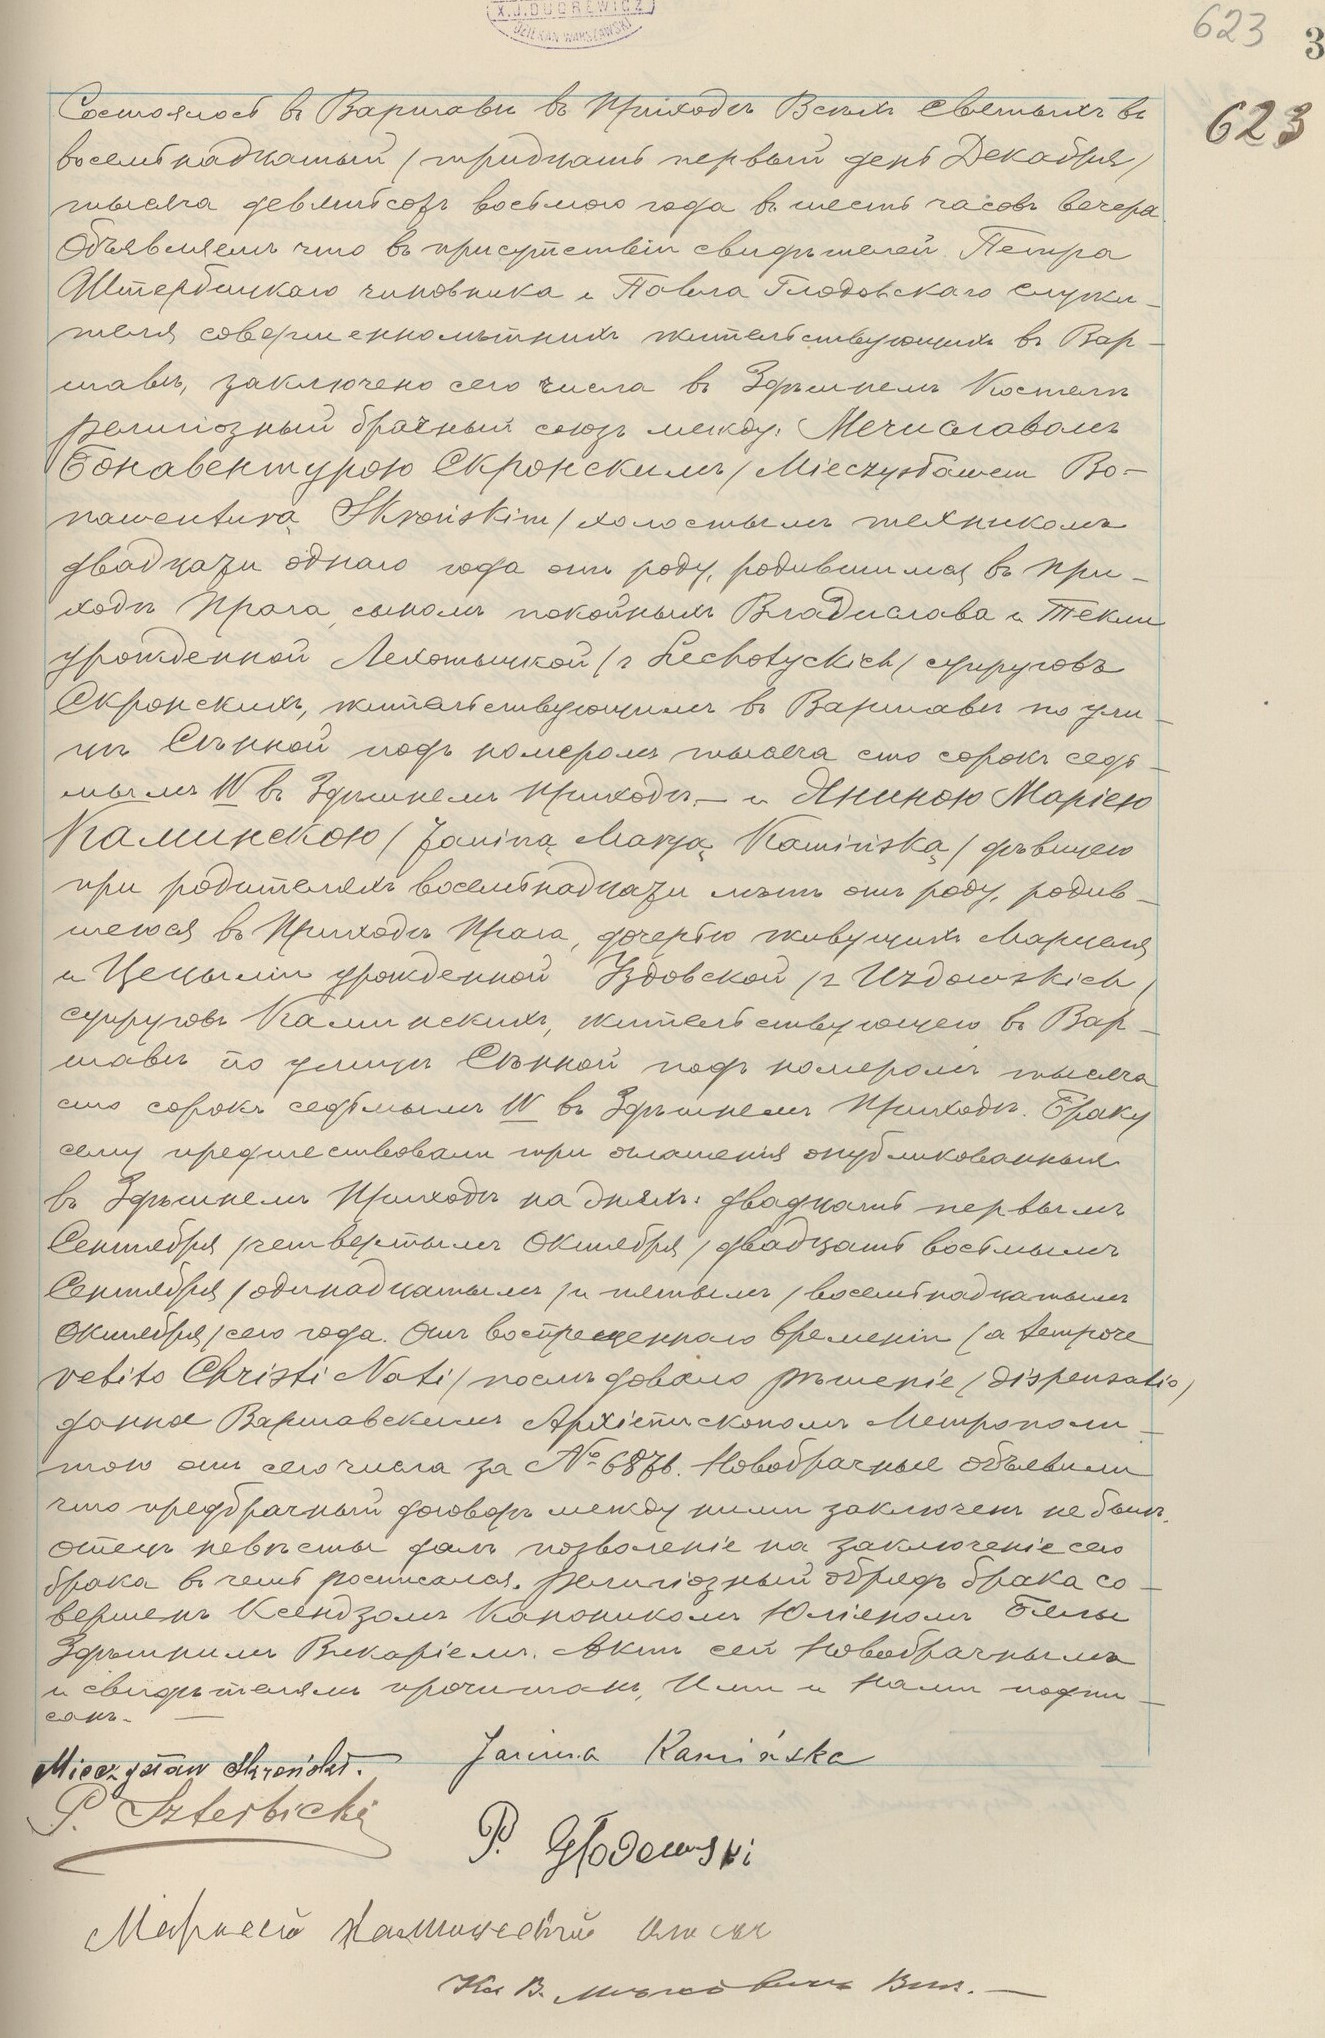 X.J.DUDREWICZ
DZIEKAN WARSZAWSKI
623
3
623
Состоялось въ Варшавѣ въ Приходѣ Всѣхъ Святыхъ въ
восемнадцатый / тридцать первый день Декабря /
тысяча девятьсотъ восьмого года въ шесть часовъ вечера.
Объявляемъ что въ присутствіи свидѣтелей Петра
Штербицкаго чиновника и Павла Глодовскаго служи-
теля совершеннолѣтнихъ жительствующихъ въ Вар-
шавѣ, заключено сего числа въ здѣшнемъ Костелѣ
религіозный брачный союзъ между: Мечиславомъ
Бонавентурою Скронскимъ / Mieczysławem Bo-
nawenturą Skrońskim / холостымъ техникомъ
двадцати однаго года отъ роду, родившимся въ При-
ходѣ Прага, сыномъ покойныхъ Владислава и Текли
урожденной Лехотыцкой / z Lechotyckich / супруговъ
Скронскихъ, жительствующимъ въ Варшавѣ по ули-
цѣ Сѣнной подъ номеромъ тысяча сто сорокъ седь-
мымъ IV въ Здѣшнемъ Приходѣ, — и Яниною Маріею
Каминскою / Janiną Marją Kamińską / дѣвицею
при родителяхъ восемнадцати лѣтъ отъ роду, родив-
шеюся въ Приходѣ Прага, дочерью живущихъ Марцелія
и Цециліи урожденной Уздовской / z Uzdowskich /
супруговъ Каминскихъ, жительствующею въ Вар-
шавѣ по улицѣ Сѣнной подъ номеромъ тысяча
сто сорокъ седьмымъ IV въ Здѣшнемъ Приходѣ. Браку
сему предшествовали три оглашенія опубликованныя
въ Здѣшнемъ Приходѣ на дняхъ: двадцать первымъ
Сентября / четвертымъ Октября / двадцать восьмымъ
Сентября / одинадцатымъ / и пятымъ / восемнадцатымъ
Октября / сего года. Отъ воспрещеннаго временіи / a tempore
vetito Christi Nati / послѣдовало рѣшеніе / dispensatio /
данная Варшавскимъ Архіепископомъ Метрополи-
тою отъ сего числа за № 6876. Новобрачные объявили
что предбрачный договоръ между ними заключенъ не былъ.
Отецъ невѣсты далъ позволеніе на заключеніе сего
брака въ чемъ росписался. Религіозный обрядъ брака со-
вершенъ Ксендзомъ Каноникомъ Юліаномъ Бялы
Здѣшнимъ Викаріемъ. Актъ сей Новобрачнымъ
и свидѣтелямъ прочитанъ, Ими и Нами подпи-
санъ. —
Mieczysław Skroński. Janina Kamińska
P. Szterbicki
P. Głodowski
Марцелій Каминскій отецъ
Кс. В. Вик. —